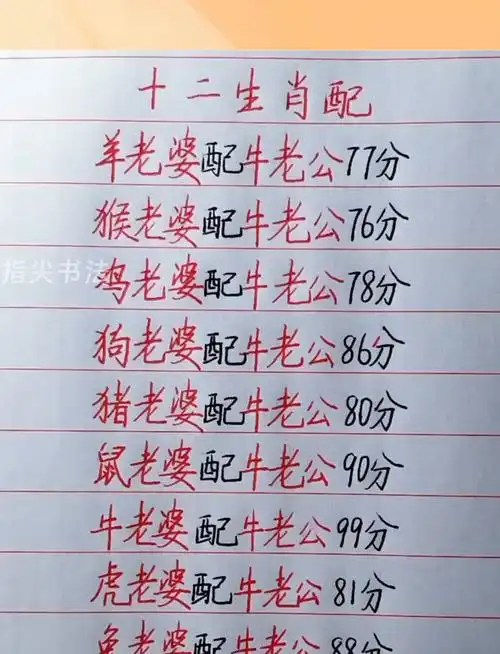 十二生肖配
羊老婆配牛老公77分
猴老婆配牛老公76分
指尖书法
鸡老婆配牛老公78分
狗老婆配牛老公86分
猪老婆配牛老公80分
鼠老婆配牛老公90分
牛老婆配牛老公99分
虎老婆配牛老公81分
兔老婆配牛老公88分